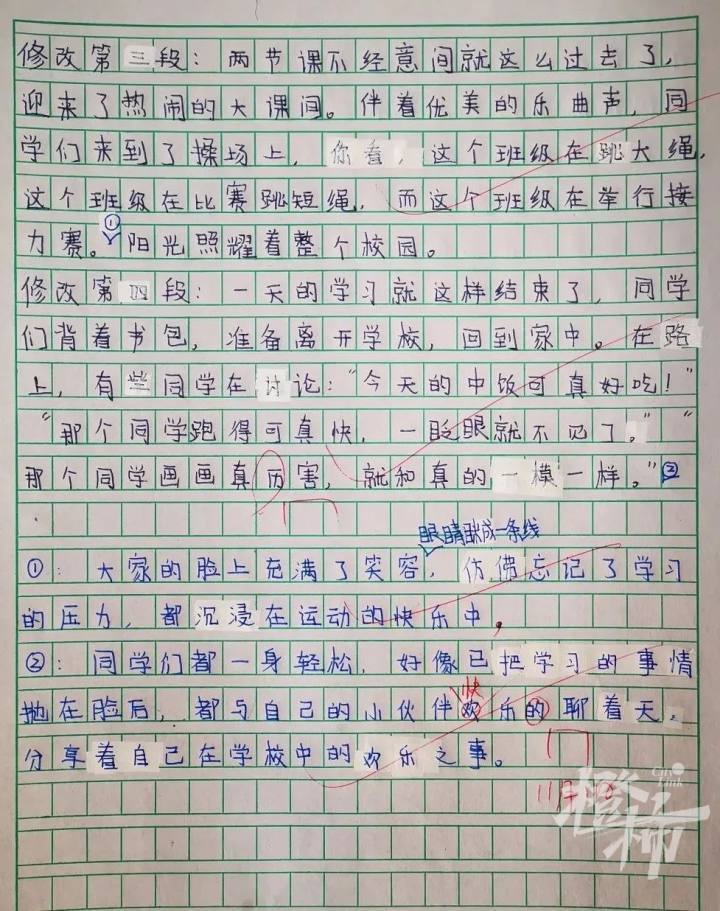 修改第三段：两节课不经意间就这么过去了，
迎来了热闹的大课间。伴着优美的乐曲声，同
学们来到了操场上，你看，这个班级在跳大绳，
这个班级在比赛跳短绳，而这个班级在举行接
力赛。①阳光照耀着整个校园。
修改第四段：一天的学习就这样结束了，同学
们背着书包，准备离开学校，回到家中。在路
上，有些同学在讨论：“今天的中饭可真好吃！”
“那个同学跑得可真快，一眨眼就不见了。”“
那个同学画画真厉害，就和真的一模一样。”②
眼睛眯成一条线
①：大家的脸上充满了笑容，仿佛忘记了学习
的压力，都沉浸在运动的快乐中，
②：同学们都一身轻松，好像已把学习的事情
快
抛在脸后，都与自己的小伙伴欢乐的聊着天，
分享着自己在学校中的欢乐之事。
City Link
橙柿